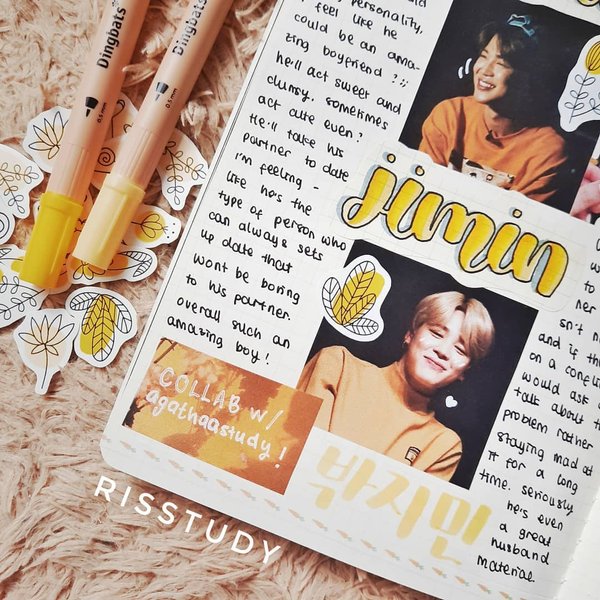 Dingbats*
0.5mm
Dingbats
0.5mm
personality,
feel like he
could be an ama-
zing boyfriend?
he'll act sweet and
clumsy, sometimes
act cute even?
He'll take his
partner to date
i'm feeling -
like he's the
type of person who
can always sets
up date that
wont be boring
to his partner.
overall such an
amazing boy!
COLLAB w/
agathaastudy!
jimin
박지민
her
isn't
and if th
on a confli
would ask
talk about t
problem rather
staying mad at
it for a long
time. seriously
he's even
a great
husband
material.
RISSTUDY